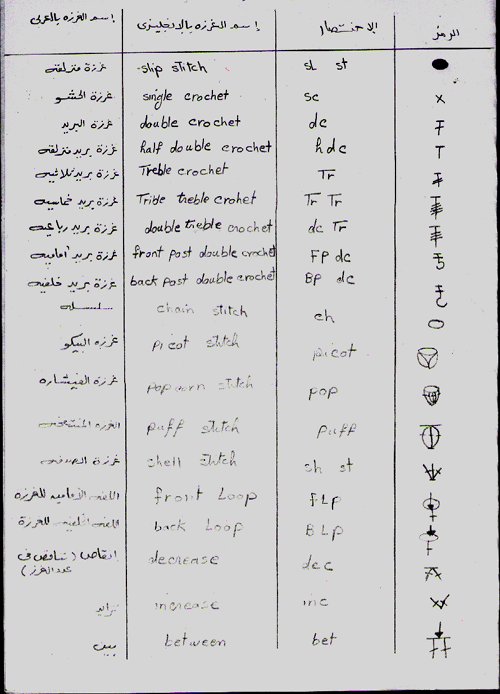 إسم الغرزه بالعربى إسم الغرزه بالإنجليزى الإختصار الرمز
غرزة منزلقه slip stitch sL st
غرزة الحشو single crochet sc x
غرزة البريد double crochet dc
غرزة بريد منزلقه half double crochet hdc T
غرزة بريد ثلاثيه Treble crochet Tr
غرزة بريد خماسيه Trible treble crohet Tr Tr
غرزة بريد رباعيه double treble crochet dc Tr
غرزة بريد أماميه front post double crochet FP dc
غرزة بريد خلفيه back post double crochet BP dc
سلسله chain stitch ch
غرزه البيكو picot stitch picot
غرزه الفيشاره popcorn stitch pop
الغرزه المنتفخه puff stitch puff
غرزة الصدفه shell stitch sh st
اللفه الأماميه للغرزه front Loop FLp
اللفه الخلفيه للغرزة back Loop BLp
إنقاص (تناقص فى عدد الغرز) decrease dec
تزايد increase inc
بين between bet